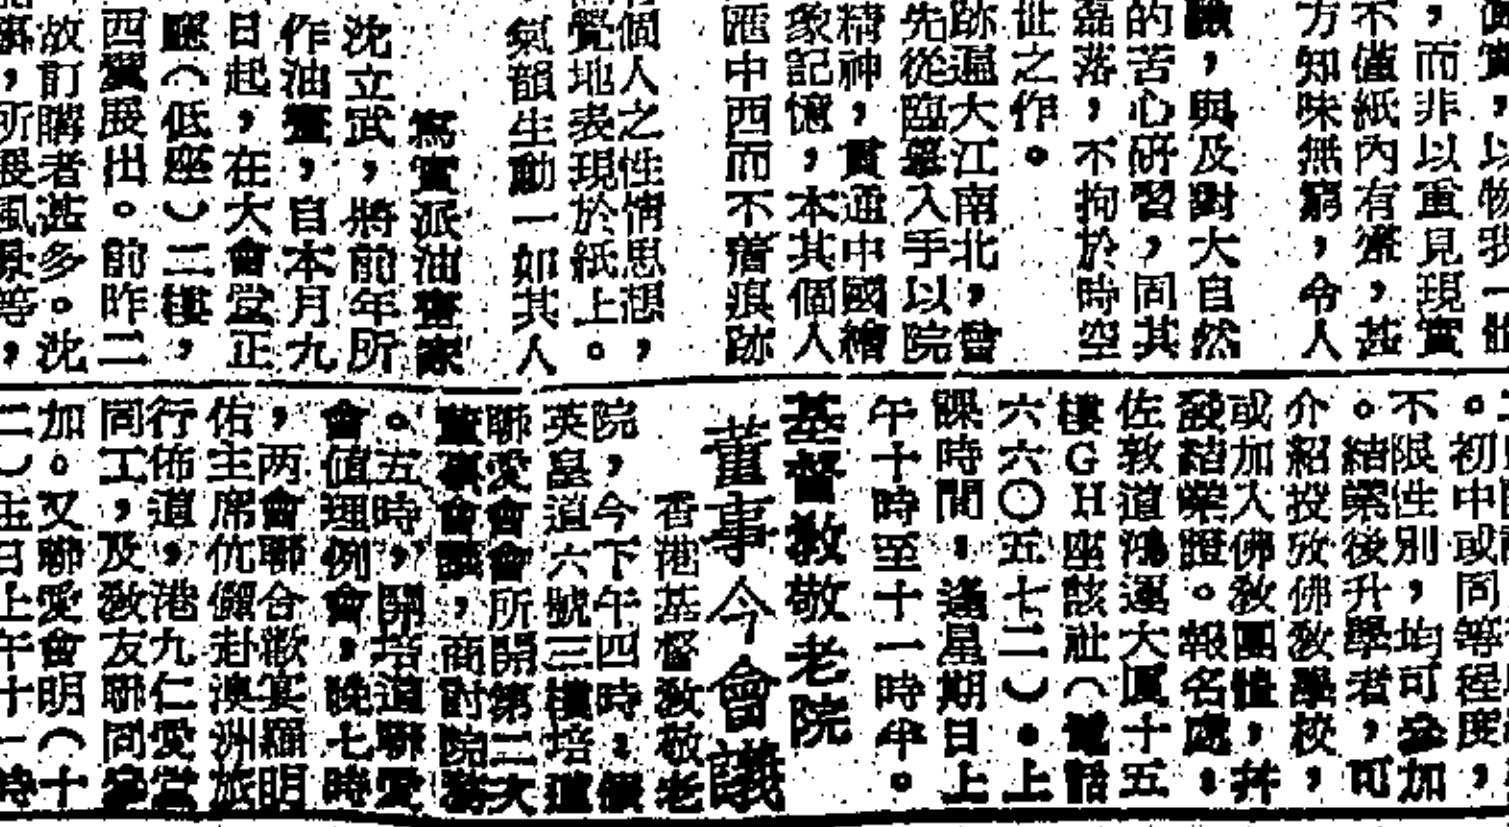 實，以物我一體
，而非以重見現實
不僅紙內有濟，甚
方知味無窮，令人
，與及對大自然
的苦心研習，同其
磊落，不拘於時空
世之作。
跡遍大江南北，曾
先從臨摹入手以院
精神，貫通中國繪
象記憶，本其個人
匯中西而不着痕跡
個人之性情思想，
覺地表現於紙上。
氣韻生動一如其人
寫實派油畫家
沈立武，將前年所
作油畫，自本月九
日起，在大會堂正
廳（低座）二樓，
西翼展出。前昨二
故訂購者甚多。沈
，所展風景等，
。初中或同等程度，
不限性別，均可參加
。結業後升學者，可
介紹投攷佛教學校，
或加入佛教團體，并
發結業證。報名處，
佐敦道鴻運大廈十五
樓GH座該社（電話
六六〇五七二）。上
課時間，逢星期日上
午十時至十一時半。
基督教敬老院
董事今會議
香港基督敎敬老
院，今下午四時，假
英皇道六號三樓培道
聯愛會會所開第二次
董事會議，商討院務
。五時，開培道聯愛
會值理例會，晚七時
，两會聯合歡宴羅明
佑主席伉儷赴澳洲旅
行佈道，港九仁愛堂
同工，及教友聯同參
加。又聯愛會明（十
二）主日上午十一時